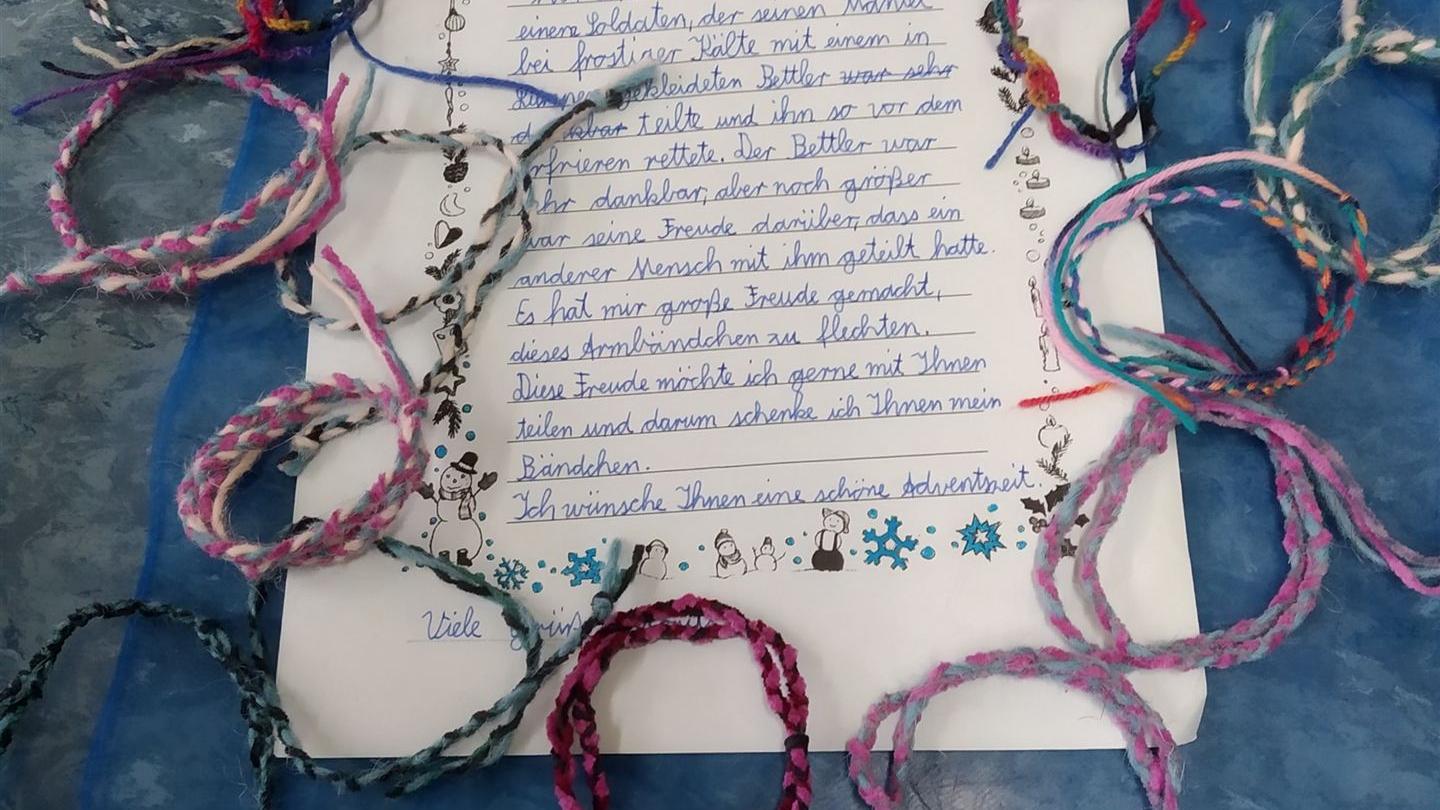 einem Soldaten, der seinen Mantel
bei frostiger Kälte mit einem in
gekleideten Bettler war sehr
dankbar teilte und ihn so vor dem
erfrieren rettete. Der Bettler war
sehr dankbar, aber noch größer
war seine Freude darüber, dass ein
anderer Mensch mit ihm geteilt hatte.
Es hat mir große Freude gemacht,
dieses Armbändchen zu flechten.
Diese Freude möchte ich gerne mit Ihnen
teilen und darum schenke ich Ihnen mein
Bändchen.
Ich wünsche Ihnen eine schöne Adventszeit.
Viele